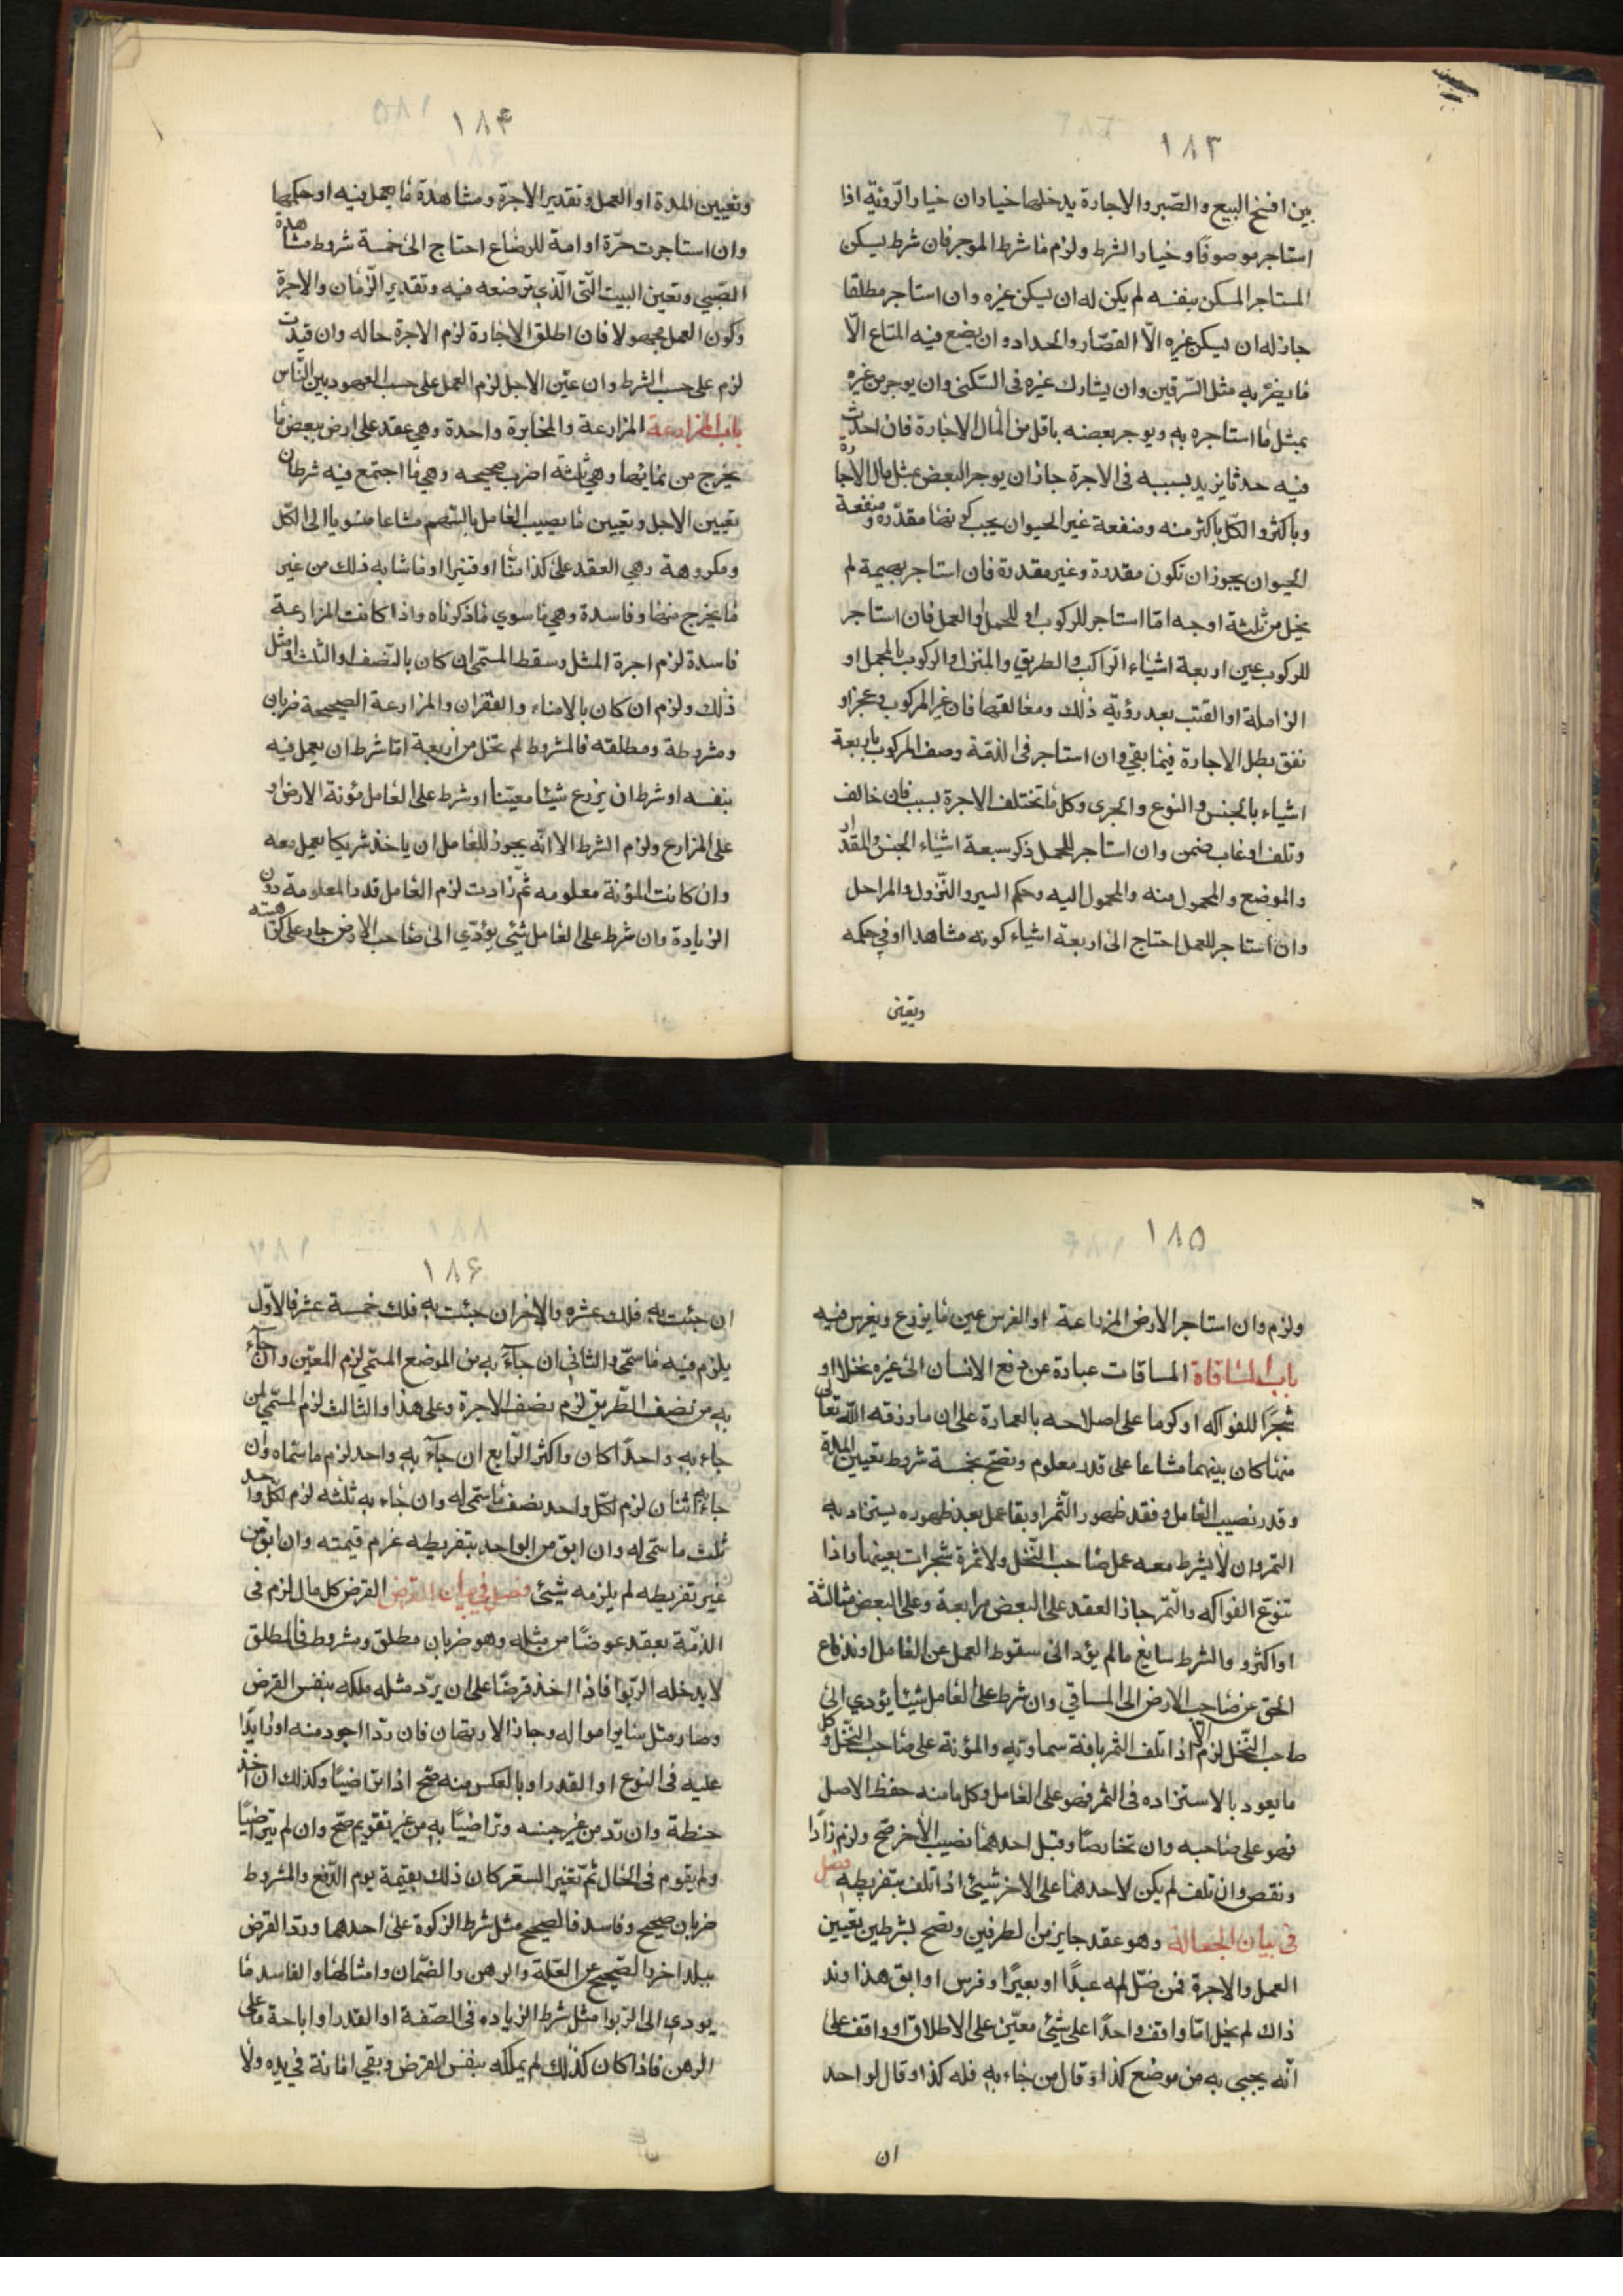 ١٨٣
بين افسخ البيع والصبر والاجارة يدخلها خياران خيار الرؤية اذا
استاجر موصوفًا وخيار الشرط ولزم ما شرط الموجر فان شرط يسكن
المستاجر المسكن بنفسه لم يكن له ان يسكن غيره وان استاجر مطلقا
جاز له ان يسكن غيره الّا القصّار والحداد وان يضع فيه المتاع الّا
ما يضرّ به مثل السّرقين وان يشارك غيره فى السّكنى وان يوجر من غيره
بمثل ما استاجره به ويوجر بعضه باقل من المال الاجارة فان احدث
فيه حدثا يزيد بسببه فى الاجرة جاز ان يوجر البعض بمثل مال الاجارة
وباكثر والكلّ باكثر منه ومنفعة غير الحيوان يجب كونها مقدّره ومنفعة
الحيوان يجوز ان تكون مقدرة وغير مقدرة فان استاجر بهيمة لم
يخل من ثلثة اوجه امّا استاجر للركوب او للحمل او العمل فان استاجر
للركوب عين اربعة اشياء الراكب والطريق والمنزل والركوب بالمحمل او
الزاملة او القتب بعد رؤية ذلك ومعاليقها فان غير المركوب وعجز او
نفق بطل الاجارة فيما بقي وان استاجر فى الذمّة وصف المركوب باربعة
اشياء بالجنس والنوع والجرى وكل ما تختلف الاجرة بسببه فان خالف
وتلف او غاب ضمن وان استاجر للحمل ذكر سبعة اشياء الجنس والمقدار
والموضع والمحمول منه والمحمول اليه وحكم السير والنّزول والمراحل
وان استاجر للعمل احتاج الى اربعة اشياء كونه مشاهدا او فى حكمه
وتعيين
١٨۴
وتعيين المدة او العمل وتقدير الاجرة ومشاهدة ما يعمل فيه او حكمها
وان استاجرت حرّة او امة للرضاع احتاج الى خمسة شروط مشاهدة
الصّبي وتعين البيت الّتى الّذي ترضعه فيه وتقدير الزّمان والاجرة
وكون العمل مجهولا فان اطلق الاجارة لزم الاجرة حاله وان قيدت
لزم على حسب الشرط وان عيّن الاجل لزم العمل على حسب العهود بين النّاس
باب المزارعة المزارعة والمخابرة واحدة وهي عقد على ارض ببعض ما
يخرج من نمائها وهي ثلثة اضرب صحيحه وهي ما اجتمع فيه شرطان
تعيين الاجل وتعيين ما يصيب العامل بالسّهم مشاعا منسوبا الى الكلّ
ومكروهة وهي العقد على كذا منّا او قفيزا او ما شابه ذلك من غير
ما يخرج منها وفاسدة وهي ما سوي ما ذكرناه واذا كانت المزارعة
فاسدة لزم اجرة المثل وسقط المسمّى ان كان بالنّصف او الثّلث او مثل
ذلك ولزم ان كان بالامناء والقفزان والمزارعة الصحيحة ضربان
ومشروطة ومطلقه فالمشروط لم تخل من اربعة امّا شرط ان يعمل فيه
بنفسه او شرط ان يزرع شيئا معيّنا او شرط على العامل مؤنة الارض او
على المزارع ولزم الشرط الا انّه يجوز للعامل ان ياخذ شريكا يعمل معه
وان كانت المؤنة معلومه ثم زادت لزم العامل قدر المعلومة دون
الزيادة وان شرط على العامل شئى يؤدّي الى صاحب الارض جاز على كراهيته
١٨۵
ولزم وان استاجر الارض المزراعة او الغرس عين ما يزرع ويغرس فيه
باب المساقاة المساقات عبارة عن دفع الانسان الى غيره نخلا او
شجرًا للفواكه او كوما على اصلاحه بالعمارة على ان ما رزقه اللّه تعالى
منها كان بينهما مشاعا على قدر معلوم وتصحّ بخمسة شروط تعيين المدة
وقدر نصيب العامل وفقد ظهور الثّمر او بقا عمل بعد ظهوره يستزاد به
الثمر وان لا يشرط معه عمل صاحب النّخل ولا ثمرة شجرات بعينها واذا
تنوّع الفواكه والثّمر جاز العقد على البعض مرابعة وعلى البعض مثالثة
او اكثر و والشرط سايغ مالم يؤد الى سقوط العمل عن العامل او ندفاع
الحق عن صاحب الارض الى المساقي وان شرط على العامل شيئا يؤدي الى
صاحب النّخل لزم الّا اذا تلف الثمر بافة سماويّه والمؤنة على صاحب النّخل وكل
ما يعود بالاستزاده فى الثمر فهو على العامل وكل ما منه حفظ الاصل
فهو على صاحبه وان تخارصا وقبل احدهما نصيب الاخر صح ولزم زادا
ونقص وان تلف لم يكن لاحدهما على الاخر شيئى اذا تلف بتفريطه فصل
فى بيان الجعالة وهو عقد جايز من الطرفين وتصح بشرطين تعيين
العمل والاجرة فمن ضلّ له عبدًا او بعيرًا وفرس او ابق هذا وند
ذاك لم يخل امّا وافق واحدًا على شئى معيّن على الاطلاق او وافقه على
انّه يجيى به من موضع كذا وقال من جاء به فله كذا وقال لواحد
ان
١٨۶
ان جئت به فلك عشره والاخر ان جئت به فلك خمسة عشر فالاوّل
يلزم فيه ما سمّى والثانى ان جاء به من الموضع المسمّي لزم المعيّن وان جاء
به من نصف الطّريق لزم نصف الاجرة وعلى هذا والثالث لزم المسمّي لمن
جاء به واحدًا كان واكثر الرّابع ان جاء به واحد لزم ما سماه وان
جاء به اثنان لزم لكلّ واحد نصف ما سمّى له وان جاء به ثلثه لزم لكل واحد
ثلث ما سمّى له وان ابق من الواحد بتفريطه غرم قيمته وان ابق من
غير تفريطه لم يلزمه شيئى فصل في بيان القرض القرض كل مال لزم فى
الذمّة بعقد عوضًا من مثله وهو ضربان مطلق ومشروط فالمطلق
لا يدخله الرّبوا فاذا اخذ قرضًا على ان يردّ مثله ملكه بنفس القرض
وصار مثل سايوا مواله وجاز الارتهان فان ردّا اجود منه او زايدًا
عليه فى النوع او القدر او بالعكس منه صح اذا تراضيًا وكذلك ان اخذ
حنطة وان رد من غير جنسه وتراضيًا به من غير تقويم صحّ وان لم يتراضيًا
ولم يقوم فى الحال ثمّ تغير السعر كان ذلك بقيمة يوم الدّفع والمشروط
ضربان صحيح وفاسد فالصحيح مثل شرط الزكوة على احدهما وردّ القرض
ببلد اخر والصّحيح عن الغلّة والرهن والضّمان وامثالها والفاسد ما
يودي الى الرّبوا مثل شرط الزياده فى الصّفة او القدر او اباحة ما على
الرهن فاذا كان كذلك لم يملكه بنفس القرض وبقي امانة في يده ولا